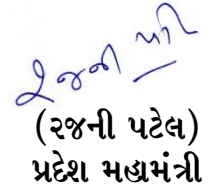 રજની પટેલ
(રજની પટેલ)
પ્રદેશ મહામંત્રી